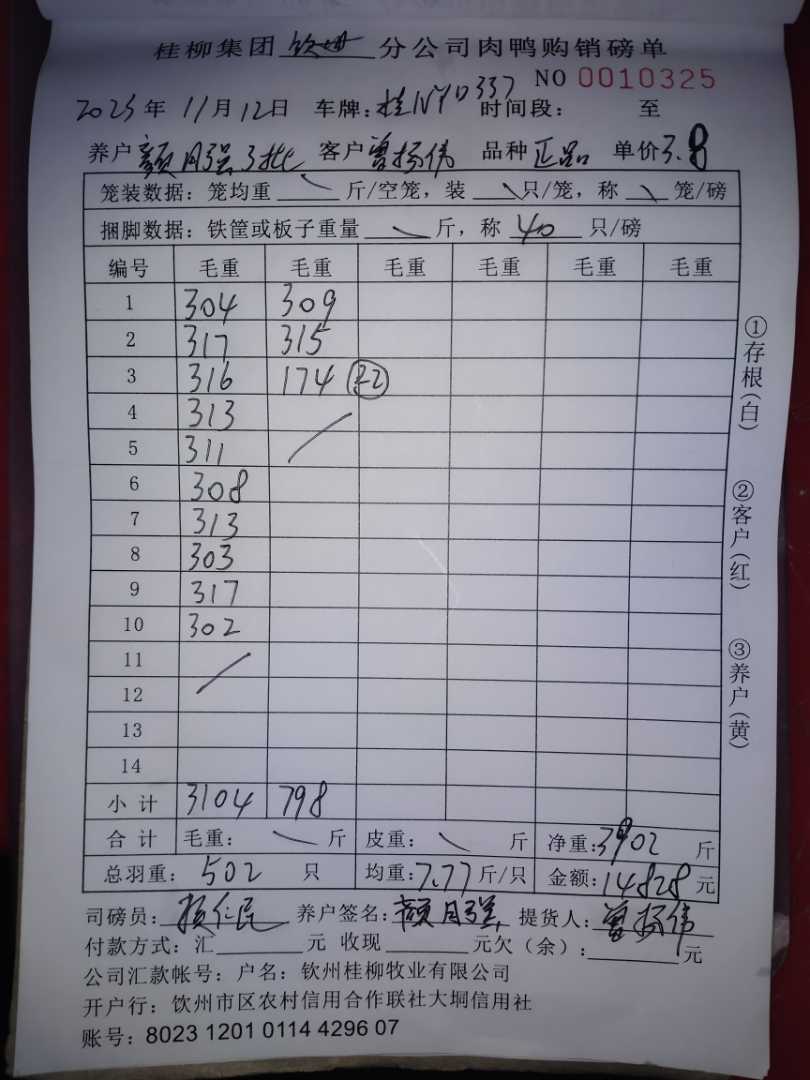 桂柳集团 钦州 分公司肉鸭购销磅单
NO 0010325
2025年 11月12日 车牌:桂NY0337 时间段: 至
养户 颜月强3批 客户 曾杨伟 品种 正品 单价3.8
笼装数据:笼均重 斤/空笼,装 只/笼,称 笼/磅
捆脚数据:铁筐或板子重量 斤,称 40 只/磅
编号 毛重 毛重 毛重 毛重 毛重 毛重
1 304 309
2 317 315
3 316 174 22
4 313
5 311
6 308
7 313
8 303
9 317
10 302
11
12
13
14
小计 3104 798
合计 毛重: 斤 皮重: 斤 净重:3902 斤
总羽重: 502 只 均重:7.77斤/只 金额:14828元
司磅员: 杨仁民 养户签名: 颜月强 提货人: 曾杨伟
付款方式:汇 元 收现 元欠(余): 元
公司汇款帐号:户名:钦州桂柳牧业有限公司
开户行:饮州市区农村信用合作联社大垌信用社
账号:8023 1201 0114 4296 07
①存根(白)
②客户(红)
③养户(黄)